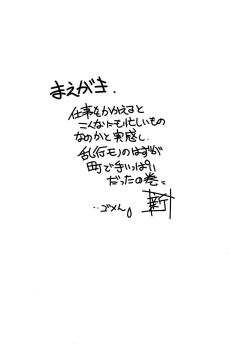 まえがき.
仕事をかかえると
こんなにも忙しいもの
なのかと実感し、
乱行モノのはずが
町で手いっぱい
だったの巻。
…ゴメん。